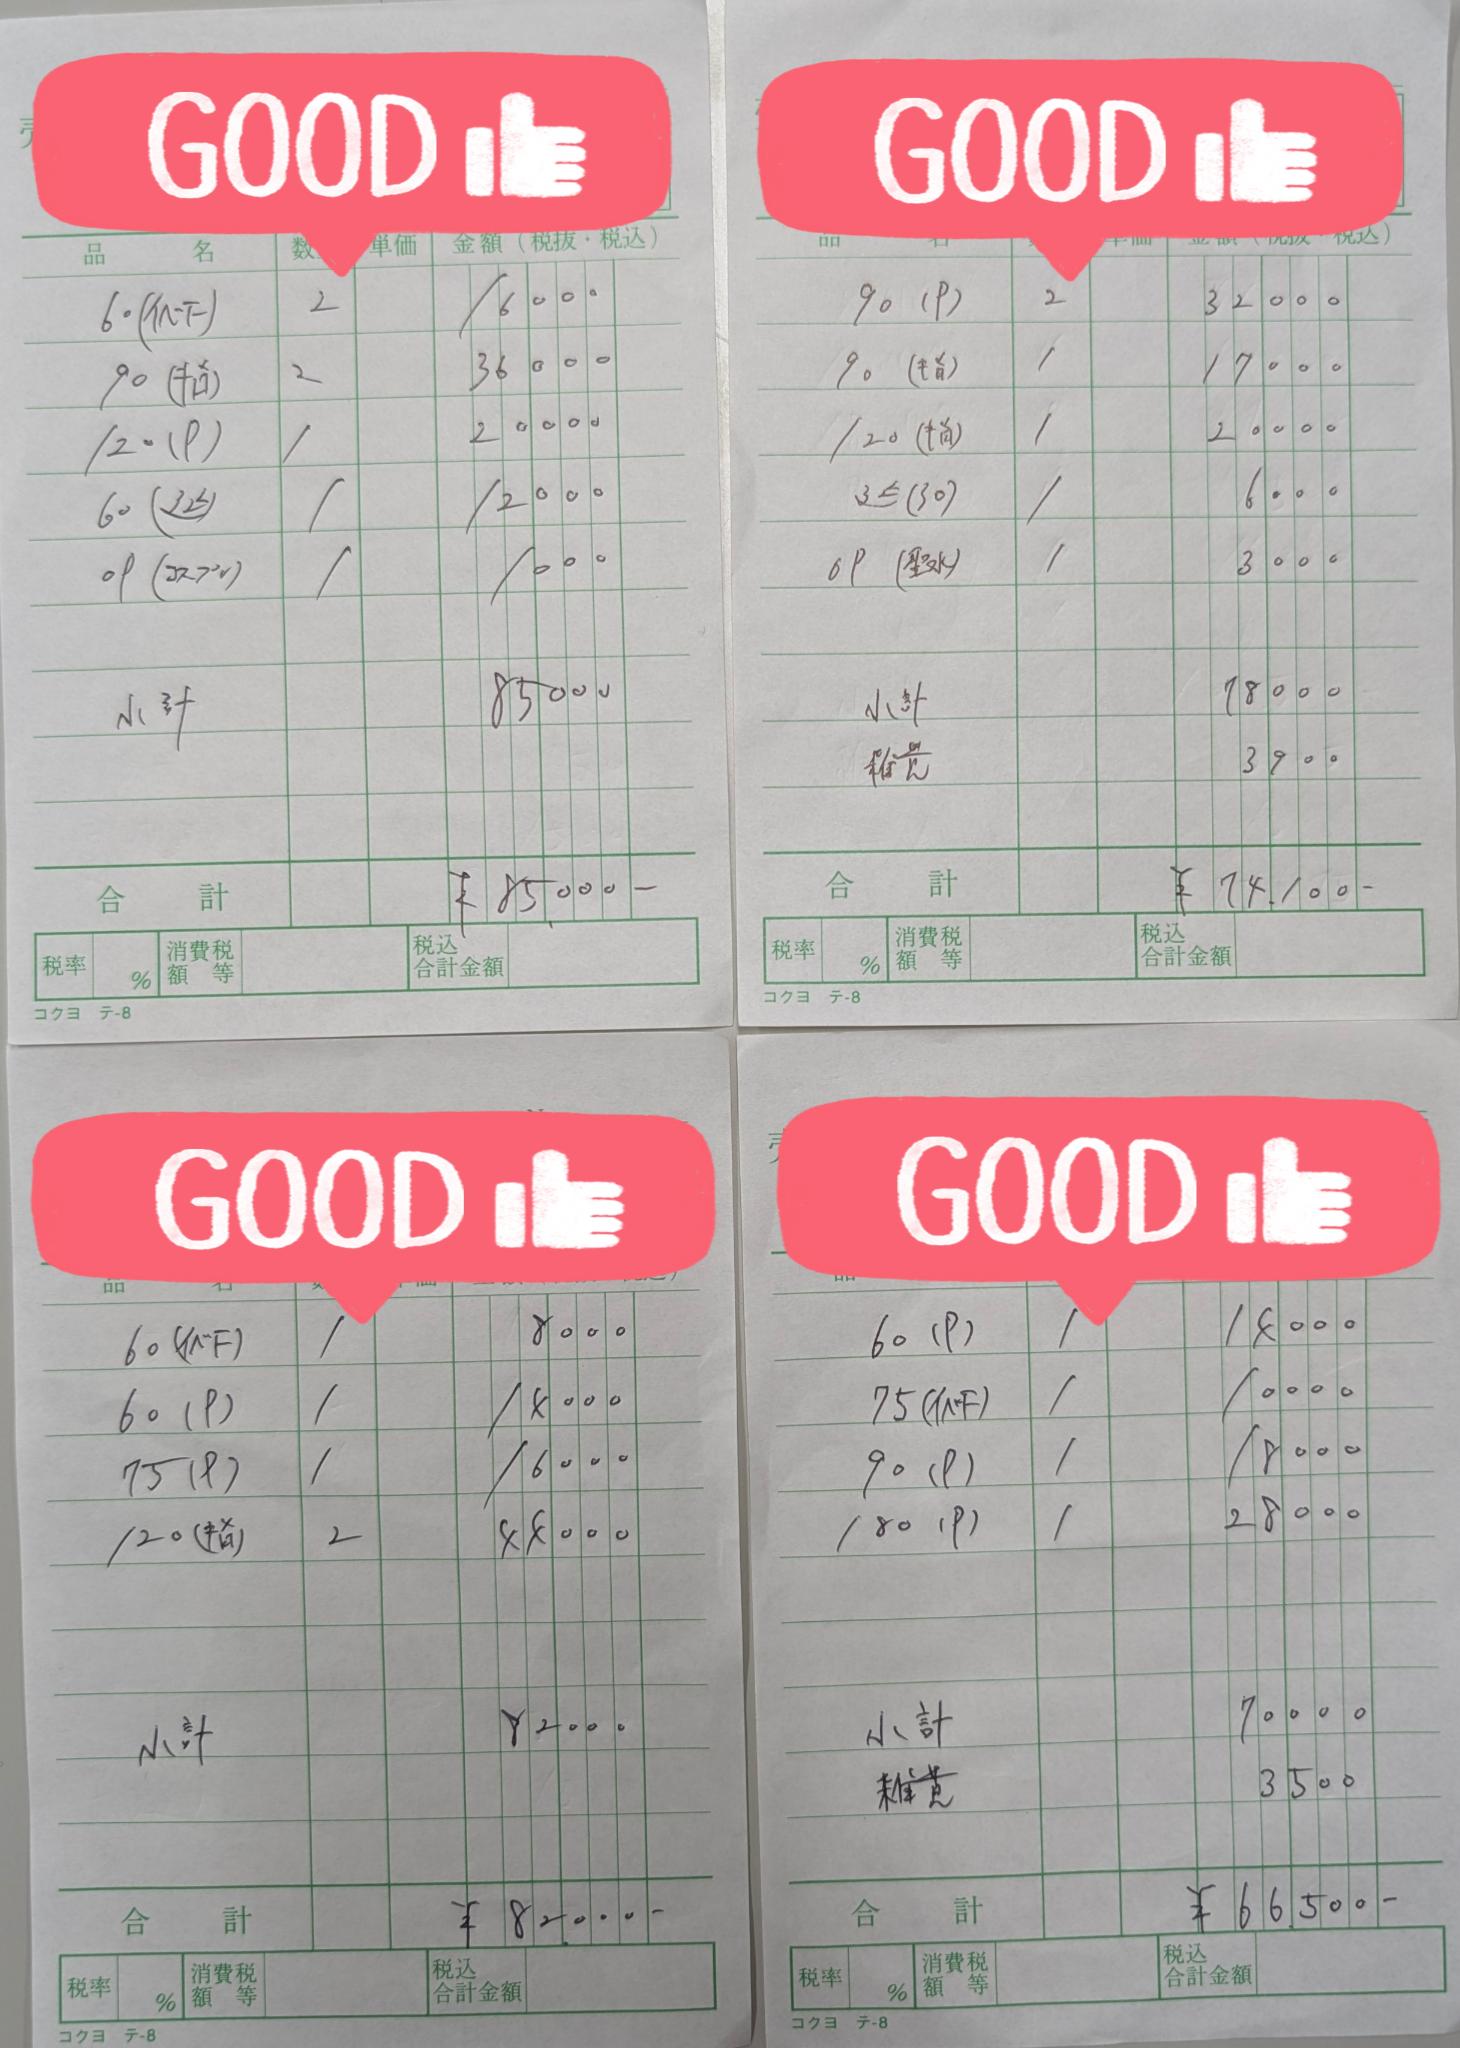 GOOD
売
品 名 数 単価 金額（税抜・税込）
60(イベF) 2 16000
90(指) 2 36000
120(P) 1 20000
60(3P) 1 12000
OP(コスプレ) 1 1000
小計 85000
合計 ¥85,000-
税率 % 消費税額等 税込合計金額
コクヨ テ-8
GOOD
品 名 単価 金額（税抜・税込）
90(P) 2 32000
90(指) 1 17000
120(指) 1 20000
(30) 1 6000
OP(聖水) 1 3000
小計 78000
雑費 3900
合計 ¥74,100-
税率 % 消費税額等 税込合計金額
コクヨ テ-8
GOOD
品 名
60(イベF) 1 8000
60(P) 1 14000
75(P) 1 16000
120(指) 2 44000
小計 82000
合計 ¥82,000-
税率 % 消費税額等 税込合計金額
コクヨ テ-8
GOOD
売
品
60(P) 1 14000
75(イベF) 1 10000
90(P) 1 18000
180(P) 1 28000
小計 70000
雑費 3500
合計 ¥66,500-
税率 % 消費税額等 税込合計金額
コクヨ テ-8